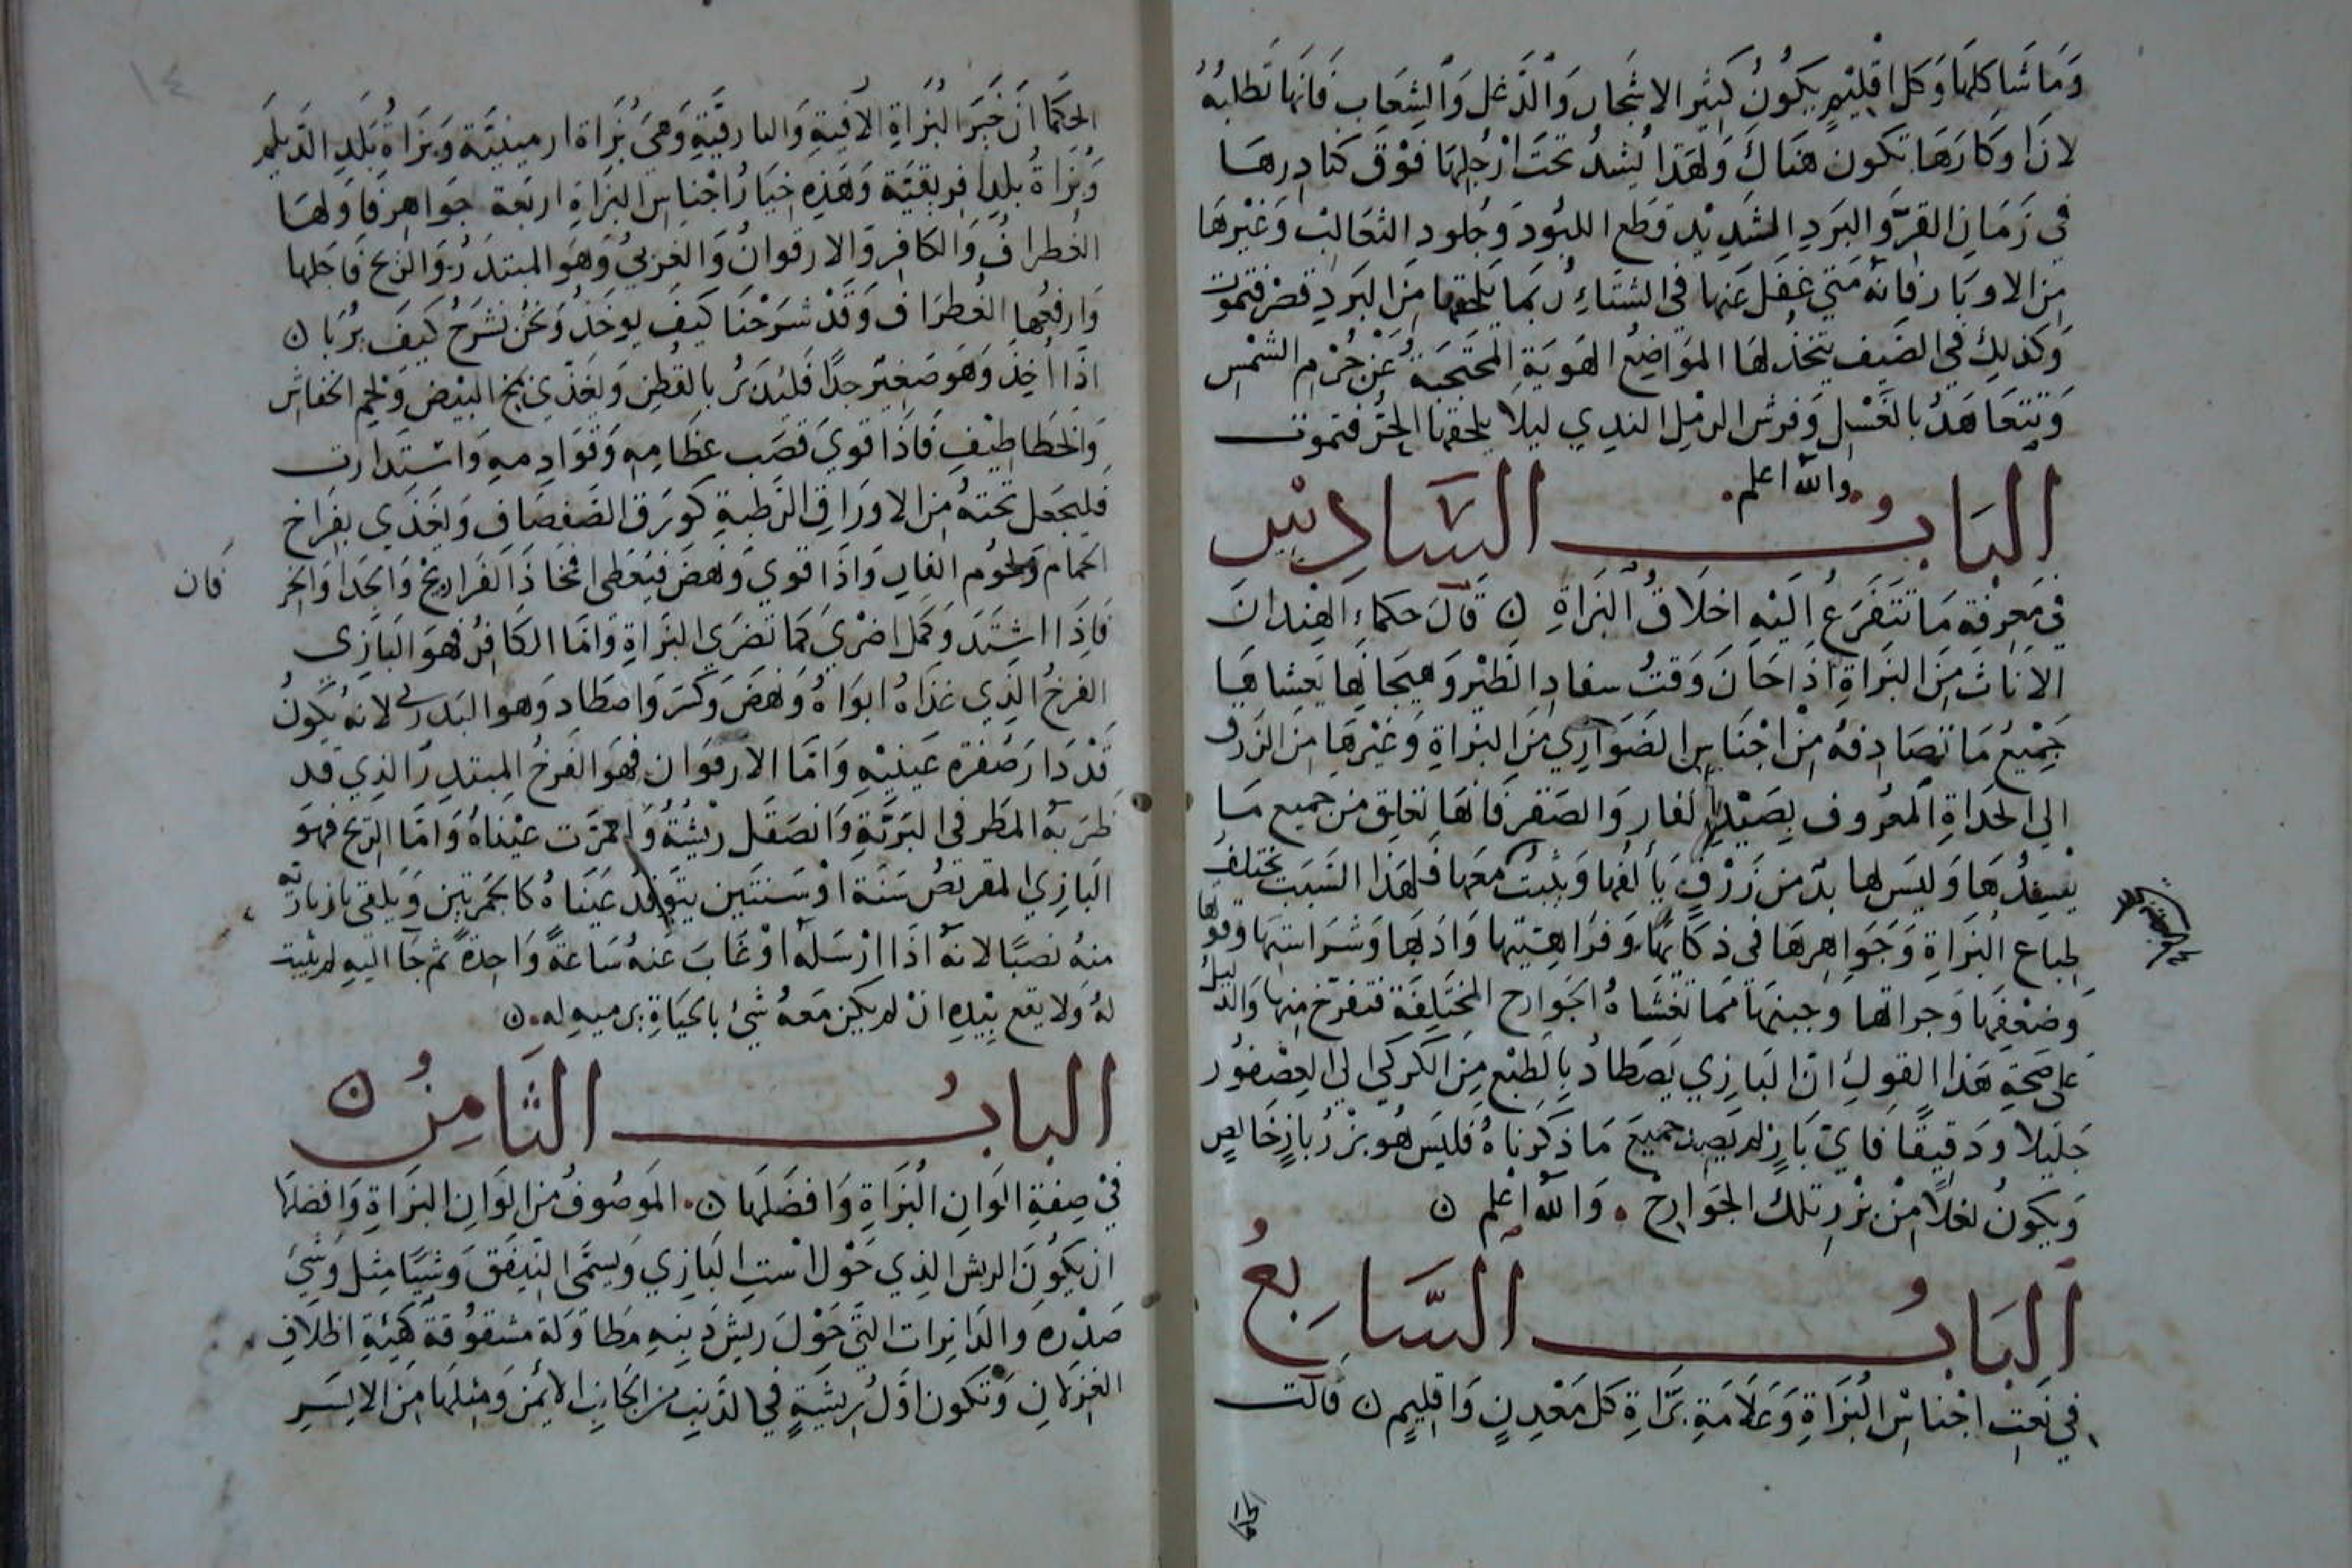 وَمَا شَاكلهَا وَكل اقْلِيْمٍ يَكُونُ كَثِير الاشجار وَالدَّغل وَالشِعَاب فَانهَا تَطلبهُ
لانَ اوكارهَا تكون هنَاكَ وَلهَذا يُشدُ تحتَ ارْجُلِهَا فَوْقَ كنادِرهَا
في زَمَانِ القرِّ وَالبَردِ الشدِيْد قطع اللبُود وَجلودِ الثعَالبْ وَغيْرهَا
مِن الاوبَار فَانهُ متي غفِل عَنها في الشتاءِ رُبمَا يَلحقهَا مِنَ البَردِ فتموت
وَكذلِكَ في الصَيف يتخذ لهَا المَوَاضِع الهَويَةِ المحتجبَةُ عَنْ جُرْم الشمْس
وَتتعَاهَدُ بالغَسْل وَفرشْ الرمْل الندِي ليلا يلحقهَا الحرُّ فتموت
والله اعلم
البَابُ السَّادِسُ
في مَعرِفةِ مَا تتفَرعُ اليْهِ اخلاقُ البَزَاةِ ن قالَ حكماءِ الهِند انَ
الاناث مِنَ البَزَاةِ اذَا حَانَ وَقتُ سفادِ الطيْر وَهيجَانهَا يَغشاهَا
جَمْيعُ مَا تصَادِفهُ مِنْ اجْنَاسِ الضَوَارِي مِنَ البَزاةِ وَغيْرهَا مِنَ الزرق
الي الحدَاةِ المعرُوف بصَيْد الفار وَالصَقر فَانهَا تعَلِق مِن جميع مَا
يسفِدُهَا وَليسَ لهَا بدّ من زَرْقٍ يَألفهَا وَيثبتُ معَهَا فلهَذا السَبَب تختلفُ
طِباع البَزَاةِ وَجَوَاهِرهَا في ذكَائهَا وَفرَاهيتهَا وَادَبهَا وَشَرَاسَتِهَا وَقوتها
وَضعْفهَا وَجراتهَا وَجبنهَا مَما تغشَاهُ الجَوَارح المختلِفة فتفرّخ مِنهَا وَالدليلُ
عَلى صحةِ هَذا القولِ انّ البَازِي يَصَطادُ بِالطبْع مِنَ الكركي الي العصْفور
جَليلا وَدَقيقًا فَايّ بَازٍ لم يصِد جميعَ مَا ذكرنَاهُ فليسَ هُو بزرُ بازٍ خَالِصٍ
وَيكونُ نغلًا مِنْ بزْرِ تلكَ الجَوارِحْ وَالله اعْلم ن
البَابُ السَّابعُ
في نَعتِ اجْناسْ البَزَاةِ وَعَلامَةِ بَزاةِ كل مَعْدِنٍ وَاقلِيمٍ ن قالت
١٤
الحكمَا انّ خَيرَ البُزَاةِ الافيةِ وَالبارقيّةِ وَهيَ بُزَاة ارمينيَّة وَبزَاةُ بَلَدِ الدّيلَمِ
وَبزاةُ بلدِ افريقيَة وَهَذِهِ خيَارُ اجْناسِ البزَاةِ اربَعة جوَاهر فاولهَا
الغطرَافُ وَالكَافِر وَالارقوانُ وَالغربيُ وَهوَ المبتدرُ وَالربخ فَاجَلها
وَارفعُها الغُطرَاف وَقدْ شرَحْنَا كيفَ يوخذُ وَنحنُ نشرَحُ كيَفَ يُربَا ن
اذَا اخِذ وَهوَ صَغيْر جدًا فَليُدثرُ بالقُطنِ وَيغذّي بمخ البيْض وَلحم الخفاش
وَالخطاطِيْفِ فَاذَا قوِيَ قصَب عظَامِهِ وَقوَادِمهِ وَاشتدَارت
فليجَعَل تحتهُ مِنَ الاورَاقِ الرَطبةِ كوَرَق الصَفصَاف وَيغَذي بفراخ
الحمَام وَلحوُم الفار وَاذَا قوِي وَنهضَ فيُعْطى افخَاذَ الفَرَاريْج وَالجدَا وَالخر
فان
فَاذَا اشتَدَ وَكمَل اضريَ كمَا تضرَي البُزَاةِ وَامّا الكَافِرُ فهوَ البَازِي
الفرخُ الذِي غذاهُ ابوَاهُ وَنهضَ وَكسَرَ وَاصْطَاد وَهوَ البَدري لانهُ يَكونُ
قدْ دَارَ صُفرَة عَينيْهِ وَامّا الارقوَان فهوَ الفَرخُ المبتدِرُ الذِي قد
ضرَبهُ المطَر في البَريَّةِ وَانصَقَل ريْشهُ وَاحمَرّت عيْناهُ وَامّا الربخ فهوَ
البَازِي المقرنصُ سَنَة اوْ سَنتَين يتَوَقد عَيناهُ كالجَمرتيْن وَيَلقي بازيارهُ
منهُ نصبًا لانهُ اذَا ارْسَلهُ اوْ غَابَ عَنهُ سَاعةً وَاحِدةً ثم جَا اليهِ لم يثبت
لهُ وَلا يقع بيْدِهِ انْ لم يكن معَهُ شيْ بالحيَاةِ يَرميهِ لهِ ن
البابُ الثَامِنُ ن
فيْ صِفةِ الوَانِ البُزَاةِ وَافضَلهَا ن المَوصُوفُ مِنَ الوَانِ البزَاةِ وَافضلهَا
ان يكوُنَ الريش الذِي حَوْل اسْتِ البَازِي وَيسمَّى النيفَق وَشيًا مثِل وَشيْ
صَدْرِهِ وَالدَايرات التي حَوْلَ ريش ذَنبِهِ مطَاولة مشقوُقة كهَيئةِ اظلاف
الغزلانِ وَتكون اوَّل رِيشَةٍ في الذنبِ مِنَ الجَانِبِ الايْمن وَمثلهَا مِنَ الايسَرِ